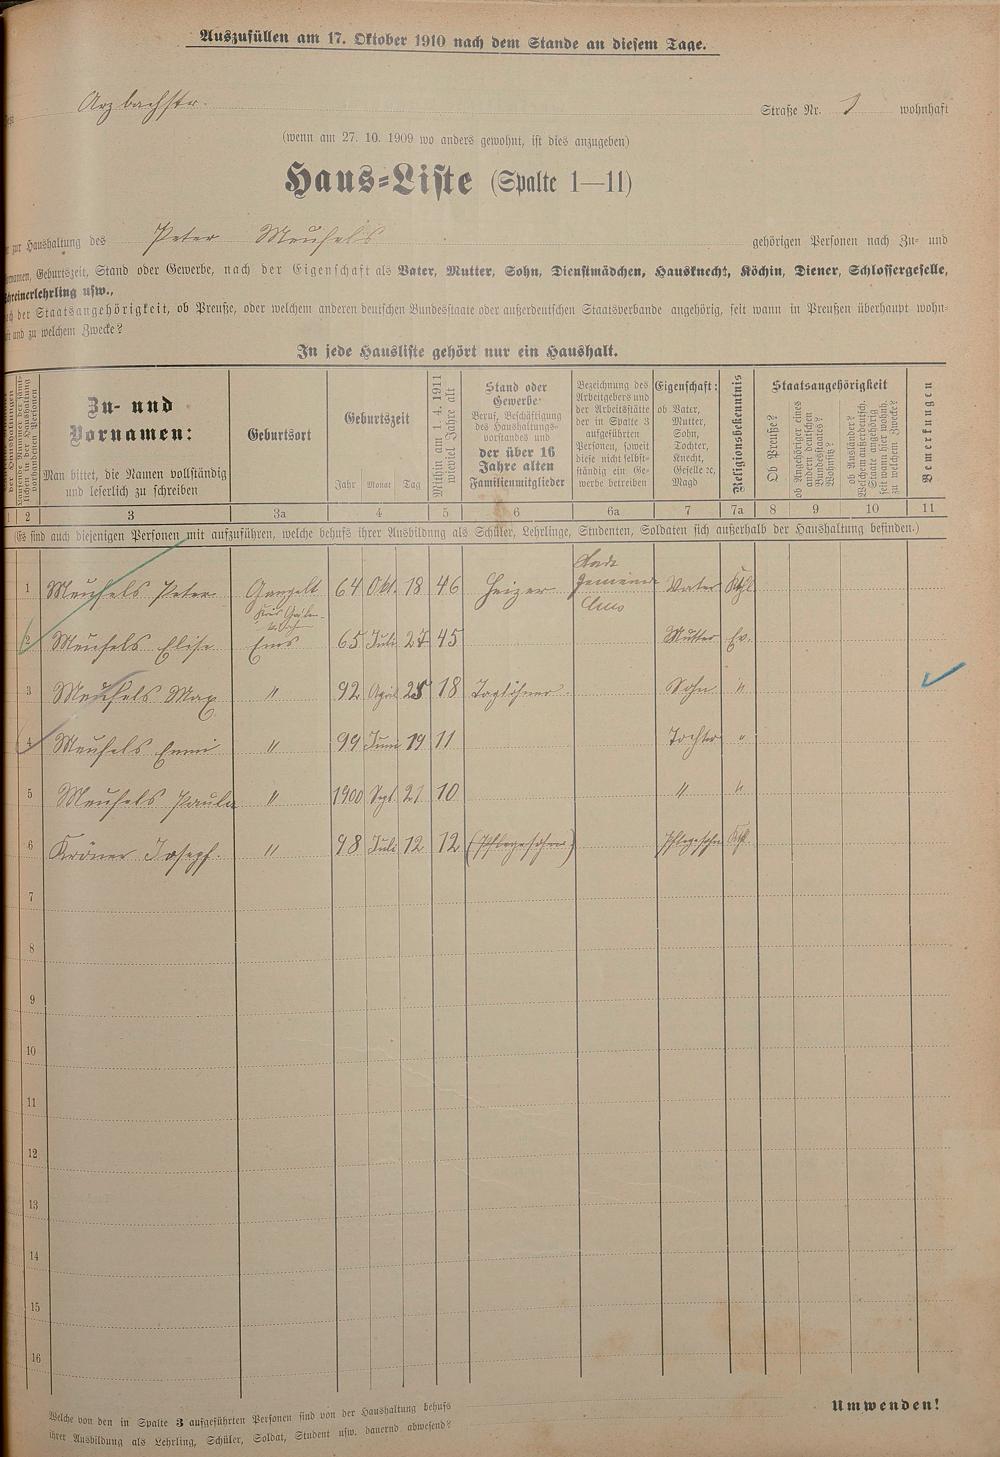 Auszufüllen am 17. Oktober 1910 nach dem Stande an diesem Tage.
Arzbachstr. Straße Nr. 1 wohnhaft
(wenn am 27. 10. 1909 wo anders gewohnt, ist dies anzugeben)
Haus-Liste (Spalte 1—11)
zur Haushaltung des Peter Meufels gehörigen Personen nach Zu- und
Geburtszeit, Stand oder Gewerbe, nach der Eigenschaft als Vater, Mutter, Sohn, Dienstmädchen, Hausknecht, Köchin, Diener, Schlossergeselle,
Schreinerlehrling usw.,
der Staatsangehörigkeit, ob Preuße, oder welchem anderen deutschen Bundesstaate oder außerdeutschen Staatsverbande angehörig, seit wann in Preußen überhaupt wohn-
und zu welchem Zwecke?
In jede Hausliste gehört nur ein Haushalt.
Zu- und Vornamen:
Man bittet, die Namen vollständig und leserlich zu schreiben
Geburtsort
Geburtszeit
Jahr Monat Tag
Mithin am 1. 4. 1911 wieviel Jahre alt
Stand oder Gewerbe:
Beruf, Beschäftigung des Haushaltungs-vorstandes und der über 16 Jahre alten Familienmitglieder
Bezeichnung des Arbeitgebers und der Arbeitsstätte der in Spalte 3 aufgeführten Personen, soweit diese nicht selbst-ständig ein Ge-werbe betreiben
Eigenschaft:
ob Vater, Mutter, Sohn, Tochter, Knecht, Geselle ꝛc, Magd
Religionsbekenntnis
Staatsangehörigkeit
Ob Preuße?
ob Angehöriger eines andern deutschen Bundesstaates? Wohnsitz?
ob Ausländer? Welchem außerdeutsch. Staate angehörig seit wann hier wohnh. zu welchem Zwecke?
Bemerkungen
1 2 3 3a 4 5 6 6a 7 7a 8 9 10 11
(Es sind auch diejenigen Personen mit aufzuführen, welche behufs ihrer Ausbildung als Schüler, Lehrlinge, Studenten, Soldaten sich außerhalb der Haushaltung befinden.)
1 Meufels Peter Gangelt 64 Okt. 18 46 Heizer Stadt gemeinde Ems Vater Kthl.
2 Meufels Elise Ems 65 Juli 27 45 Mutter Ev.
3 Meufels Max " 92 April 25 18 Taglöhner Sohn "
4 Meufels Emmi " 99 Juni 19 11 Tochter "
5 Meufels Paula " 1900 Sept. 21 10 " "
6 Kröner Joseph. " 98 Juli 12 12 (Pflegesohn) Pflegesohn Kthl.
7
8
9
10
11
12
13
14
15
16
Welche von den in Spalte 3 aufgeführten Personen sind von der Haushaltung behufs
ihrer Ausbildung als Lehrling, Schüler, Soldat, Student usw. dauernd abwesend?
Umwenden!